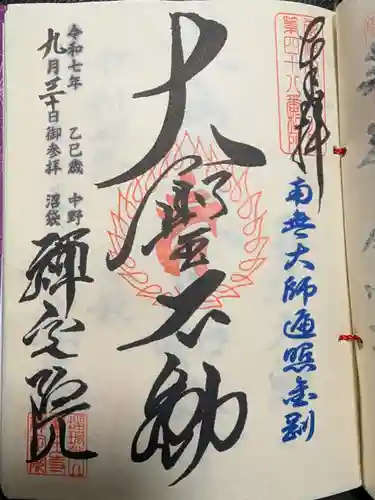 奉拝
第四十八番
南無大師遍照金剛
大聖不動
令和七年 乙巳歳 中野
九月二十日 御参拝 沼袋
禪定院